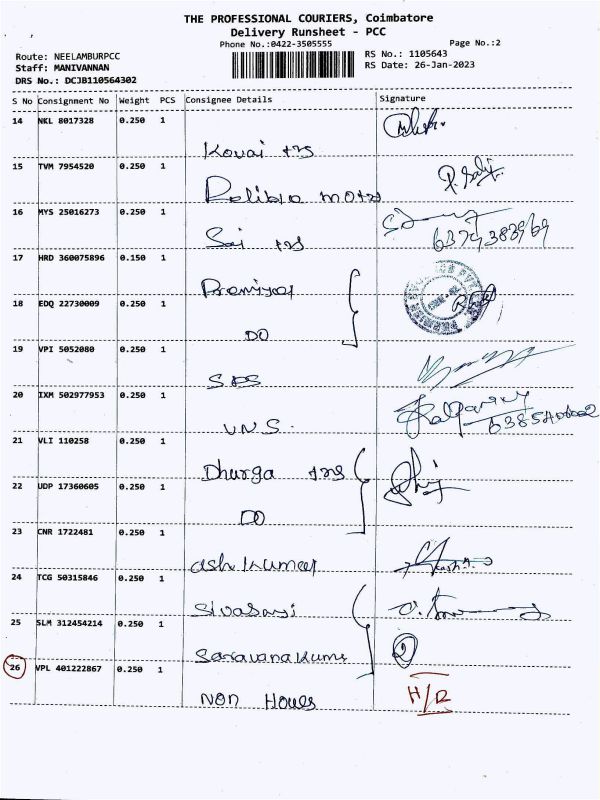 THE PROFESSIONAL COURIERS, Coimbatore
Delivery Runsheet - PCC
Phone No.:0422-3505555
Page No.:2
Route: NEELAMBURPCC
RS No.: 1105643
Staff: MANIVANNAN
RS Date: 26-Jan-2023
DRS No.: DCJB110564302
S No Consignment No Weight PCS Consignee Details Signature
14 NKL 8017328 0.250 1
Kovai trs
15 TVM 7954520 0.250 1
motrs
16 MYS 25016273 0.250 1
Sai trs
17 HRD 360075896 0.150 1
18 EDQ 22730009 0.250 1
DO
19 VPI 5052080 0.250 1
20 IXM 502977953 0.250 1
V.N.S.
21 VLI 110258 0.250 1
Dhurga trs
22 UDP 17360605 0.250 1
DO
23 CNR 1722481 0.250 1
ashkumar
24 TCG 50315846 0.250 1
25 SLM 312454214 0.250 1
26 VPL 401222867 0.250 1
NON Houes
H/R